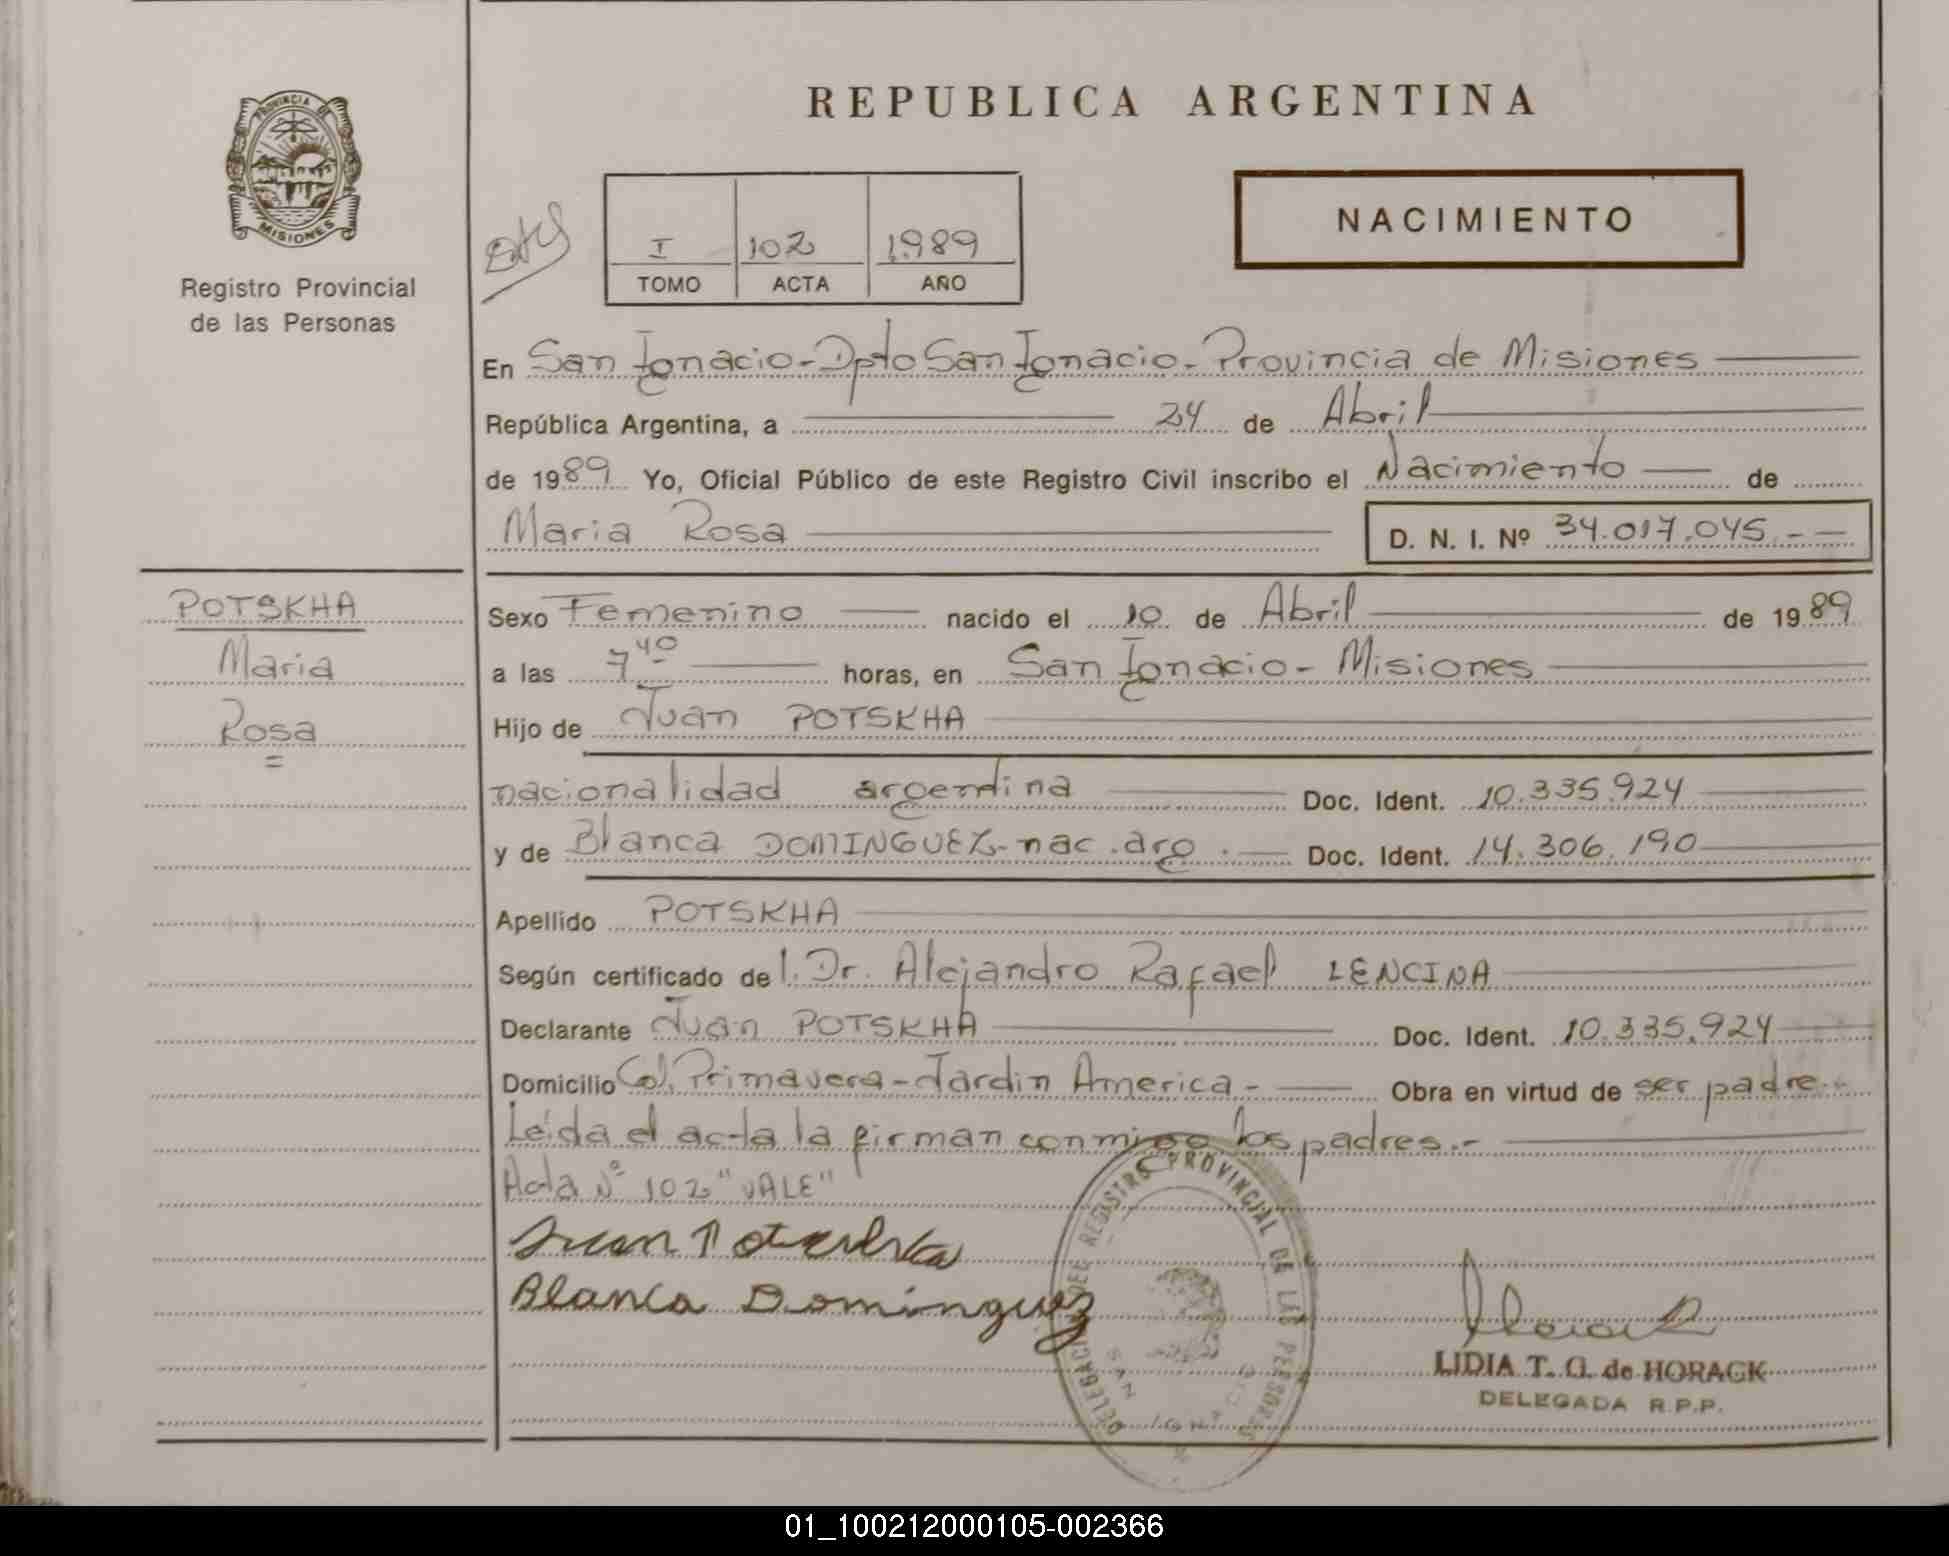 REPUBLICA ARGENTINA
PROVINCIA DE
MISIONES
Registro Provincial
de las Personas
I 102 1989
TOMO ACTA AÑO
NACIMIENTO
En San Ignacio - Dpto San Ignacio - Provincia de Misiones
República Argentina, a 24 de Abril
de 1989 Yo, Oficial Público de este Registro Civil inscribo el Nacimiento de
Maria Rosa D. N. I. Nº 34.017.045.--
POTSKHA
Maria
Rosa
Sexo Femenino nacido el 10 de Abril de 1989
a las 7 40 horas, en San Ignacio - Misiones
Hijo de Juan POTSKHA
nacionalidad argentina Doc. Ident. 10.335.924
y de Blanca DOMINGUEZ - nac. arg. Doc. Ident. 14.306.190
Apellido POTSKHA
Según certificado de l. Dr. Alejandro Rafael LENCINA
Declarante Juan POTSKHA Doc. Ident. 10.335.924
Domicilio Col. Primavera - Jardin America - Obra en virtud de ser padre.-
Leída el acta la firman conmigo los padres.-
Acta Nº 102 "VALE"
Juan Potskha
Blanca Dominguez
DELEGACION DEL REGISTRO PROVINCIAL DE LAS PERSONAS
SAN IGNACIO
Horack
LIDIA T. G. de HORACK
DELEGADA R.P.P.
01_100212000105-002366